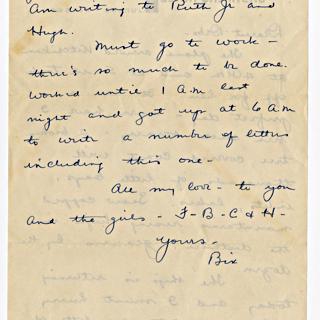 Am writing to Ruth Jr and
Hugh.
Must go to work -
there's so much to be done.
Worked until 1 A.M. last
night and got up at 6 A.M
to write a number of letters
including this one -
All my love - to you
and the girls - F - B - C & H -
Yours -
Bix